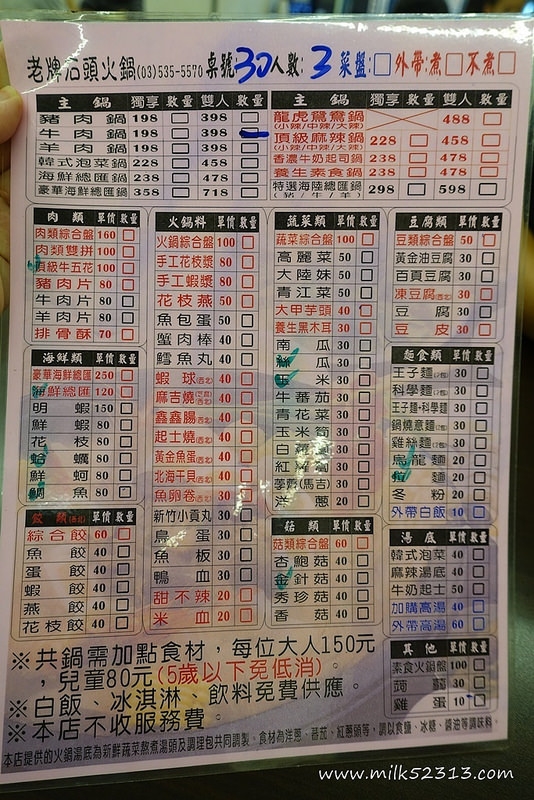 老牌石頭火鍋(03)535-5570 桌號30人數:3 菜盤:□ 外帶:煮□不煮□
主鍋 獨享 數量 雙人 數量
豬肉鍋 198 □ 398 □
牛肉鍋 198 □ 398 □
羊肉鍋 198 □ 398 □
韓式泡菜鍋 228 □ 458 □
海鮮總匯鍋 238 □ 478 □
豪華海鮮總匯鍋 358 □ 718 □
主鍋 獨享 數量 雙人 數量
龍虎鴛鴦鍋 488 □
(小辣/中辣/大辣)
頂級麻辣鍋 228 □ 458 □
(小辣/中辣/大辣)
香濃牛奶起司鍋 238 □ 478 □
養生素食鍋 238 □ 478 □
特選海陸總匯鍋 298 □ 598 □
(豬/牛/羊)
肉類 單價 數量
肉類綜合盤 160 □
肉類雙拼 100 □
頂級牛五花 100 □
豬肉片 80 □
牛肉片 80 □
羊肉片 80 □
排骨酥 70 □
海鮮類 單價 數量
豪華海鮮總匯 250 □
海鮮總匯 120 □
明蝦 150 □
鮮蝦 80 □
花枝 80 □
蛤蠣 80 □
鮮蚵 80 □
鯛魚 80 □
餃類 單價 數量
綜合餃 60 □
魚餃 40 □
蛋餃 40 □
蝦餃 40 □
燕餃 40 □
花枝餃 40 □
火鍋料 單價 數量
火鍋綜合盤 100 □
手工花枝漿 80 □
手工蝦漿 80 □
花枝燕 50 □
魚包蛋 50 □
蟹肉棒 40 □
鱈魚丸 40 □
蝦球(西北) 40 □
麻吉燒 40 □
鑫鑫腸(西北) 40 □
起士燒(西北) 40 □
黃金魚蛋(西北) 40 □
北海干貝(西北) 40 □
魚卵卷(西北) 30 □
新竹小貢丸 30 □
鳥蛋 30 □
魚板 30 □
鴨血 30 □
甜不辣 20 □
米血 20 □
蔬菜類 單價 數量
蔬菜綜合盤 100 □
高麗菜 50 □
大陸妹 50 □
青江菜 50 □
大甲芋頭 40 □
養生黑木耳 30 □
南瓜 30 □
絲瓜 30 □
玉米 30 □
牛蕃茄 30 □
青花菜 30 □
玉米筍 30 □
白蘿蔔 30 □
紅蘿蔔 30 □
洋蔥 20 □
菇類 單價 數量
菇類綜合盤 60 □
杏鮑菇 40 □
金針菇 40 □
秀珍菇 40 □
香菇 40 □
豆腐類 單價 數量
豆類綜合盤 50 □
黃金油豆腐 30 □
百頁豆腐 30 □
凍豆腐(西北) 30 □
豆腐 30 □
豆皮 30 □
麵食類 單價 數量
王子麵(2包) 30 □
科學麵(2包) 30 □
王子麵+科學麵 30 □
鍋燒意麵(2包) 30 □
雞絲麵(2包) 30 □
烏龍麵 20 □
拉麵 20 □
冬粉 20 □
外帶白飯 10 □
湯底 單價 數量
韓式泡菜 40 □
麻辣湯底 40 □
牛奶起士 50 □
加購高湯 40 □
外帶高湯 60 □
其他 單價 數量
素食火鍋盤 100 □
蒟蒻 30 □
雞蛋 10 □
※共鍋需加點食材,每位大人150元
,兒童80元(5歲以下免低消)。
※白飯、冰淇淋、飲料免費供應。
※本店不收服務費。
本店提供的火鍋湯底為新鮮蔬菜熬煮湯頭及調理包共同調製,食材為洋蔥、蕃茄、紅蘿蔔等,調以食鹽、冰糖、醬油等調味料.
www.milk52313.com